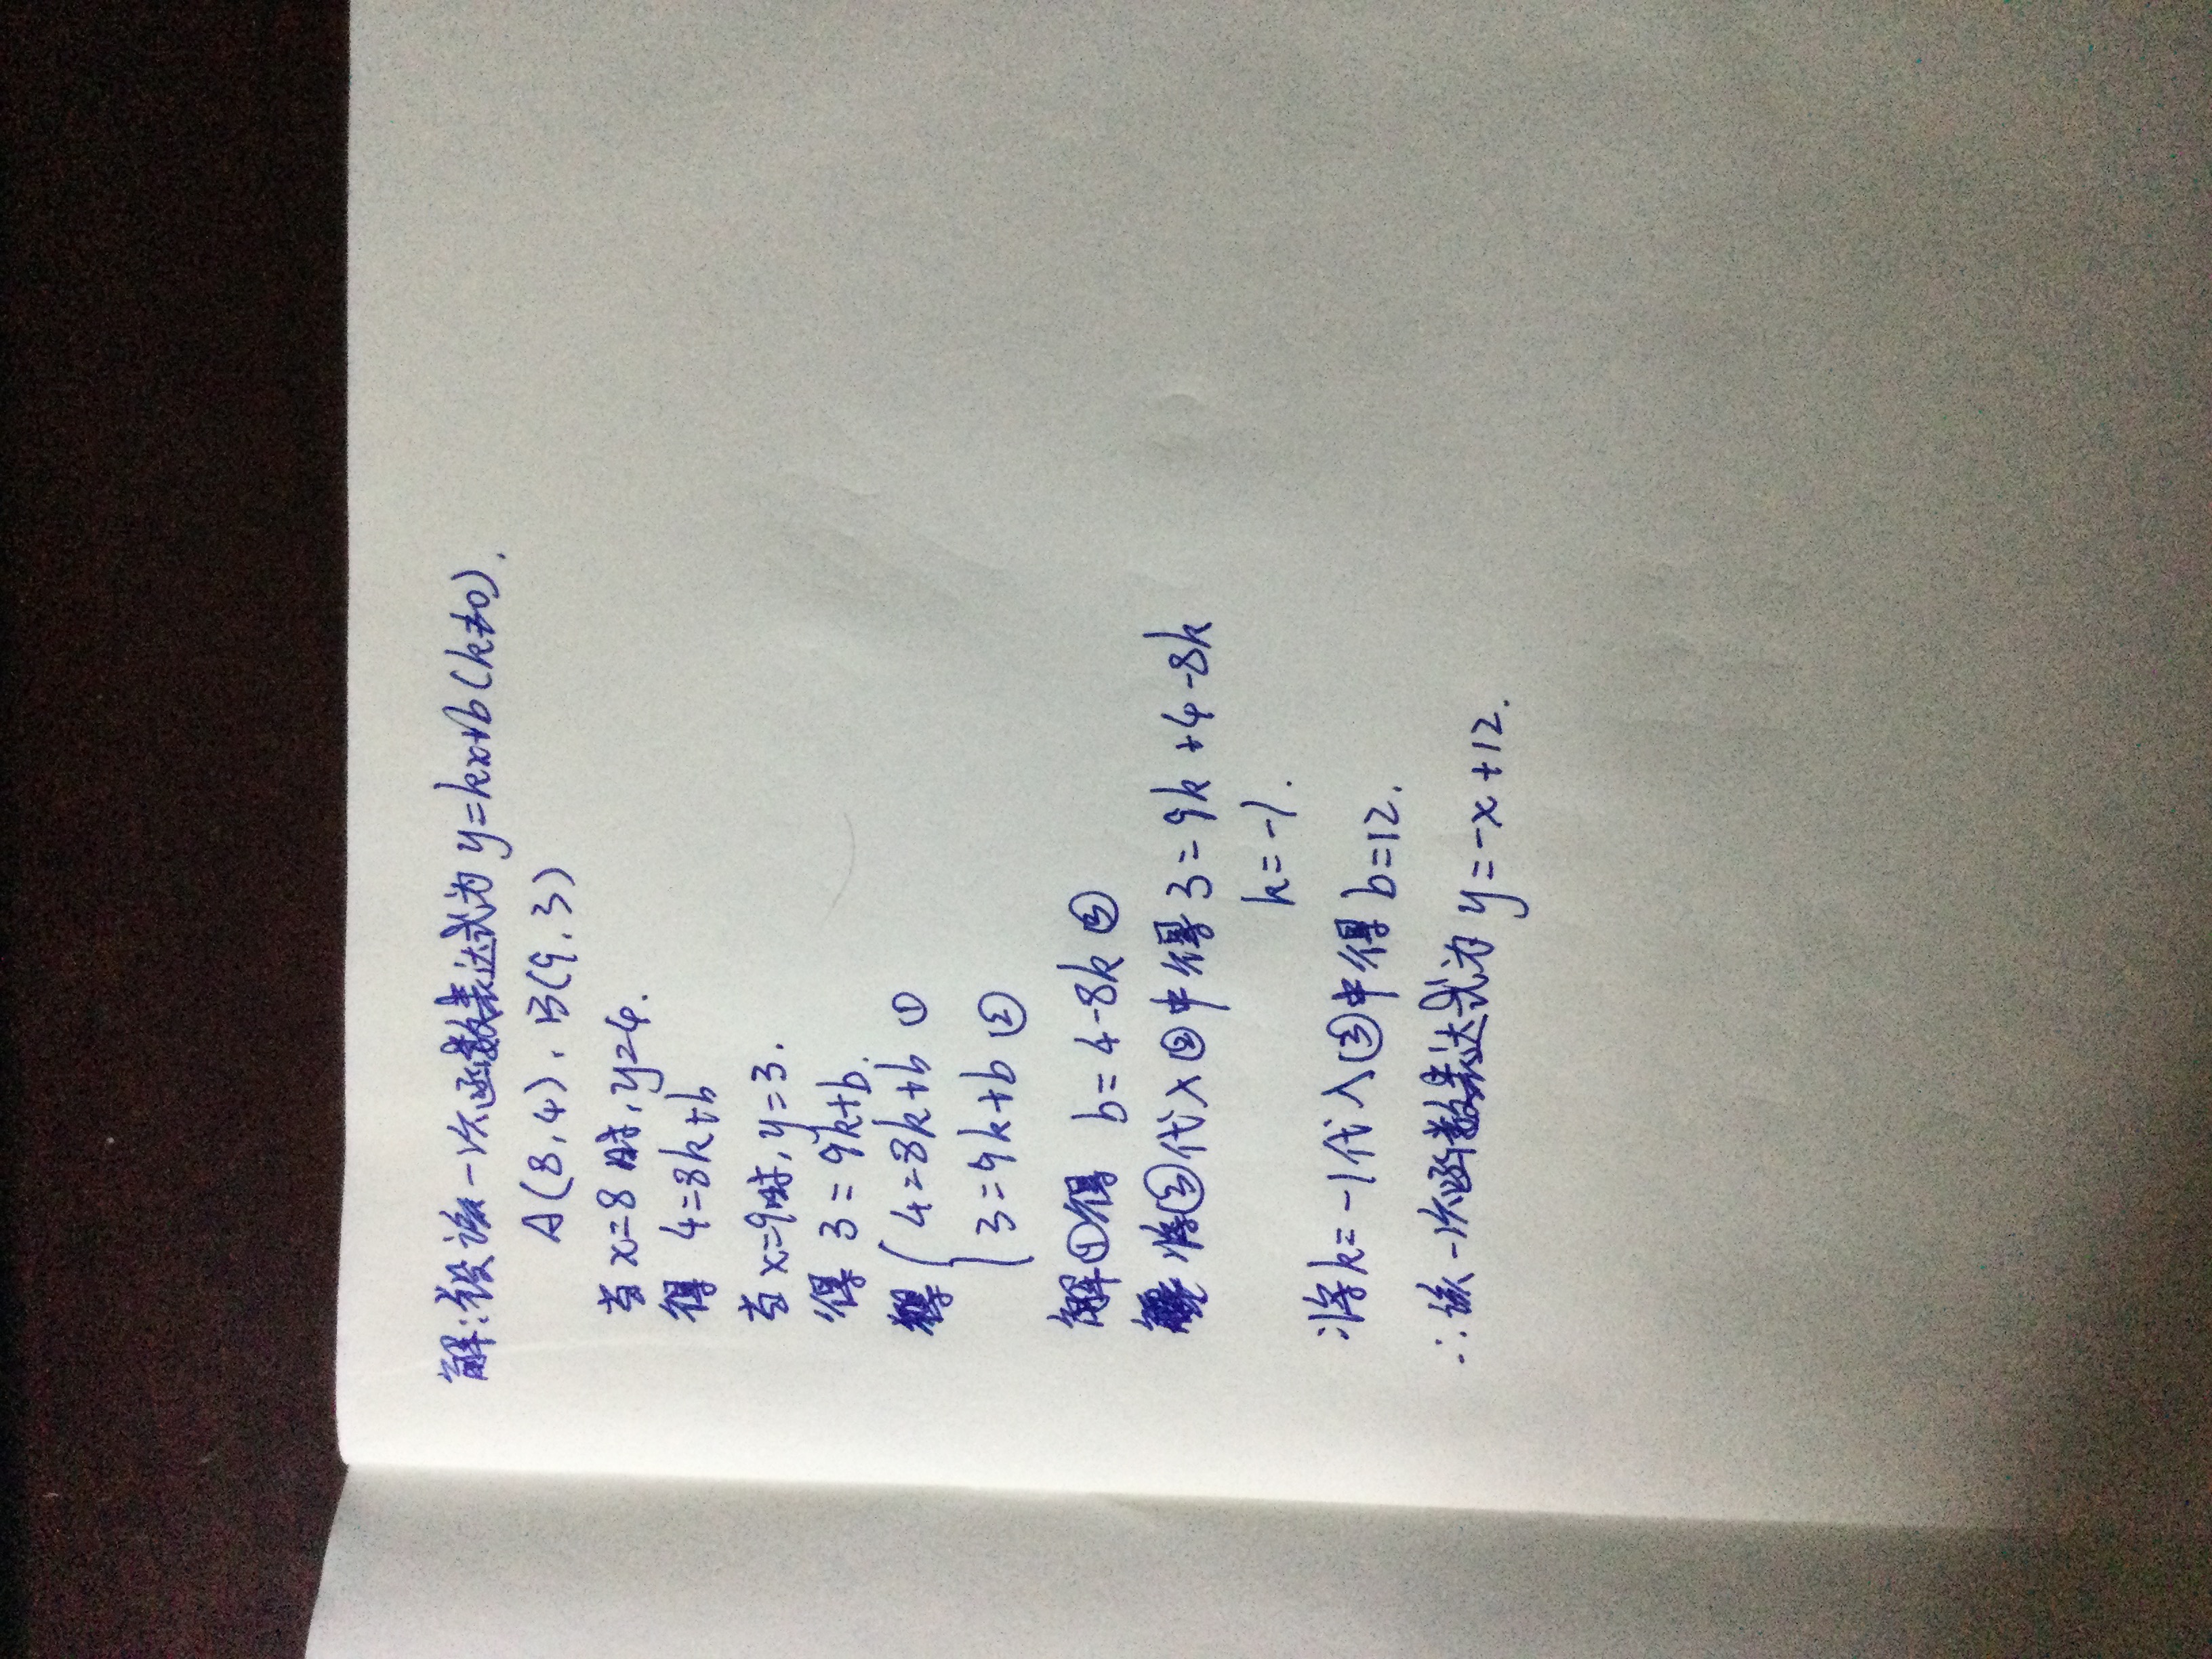 解:设该一次函数表达式为y=kx+b(k≠0).
A(8,4),B(9,3)
当x=8时,y=4.
得 4=8k+b
当x=9时,y=3.
得 3=9k+b.
{4=8k+b ①
3=9k+b ②
解①得 b=4-8k ③
将③代入②中得3=9k+4-8k
k=-1.
将k=-1代入③中得b=12.
∴该一次函数表达式为y=-x+12.